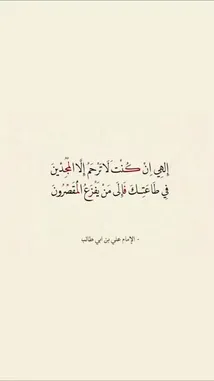 إلهِي اِنْ كُنْتَ لَا تَرْحَمُ إلَّا المُجِدّينَ
فِي طَاعَتِكَ فَإلَى مَنْ يَفْزَعُ المُقَصّرُونَ
- الإمام علي بن ابي طالب